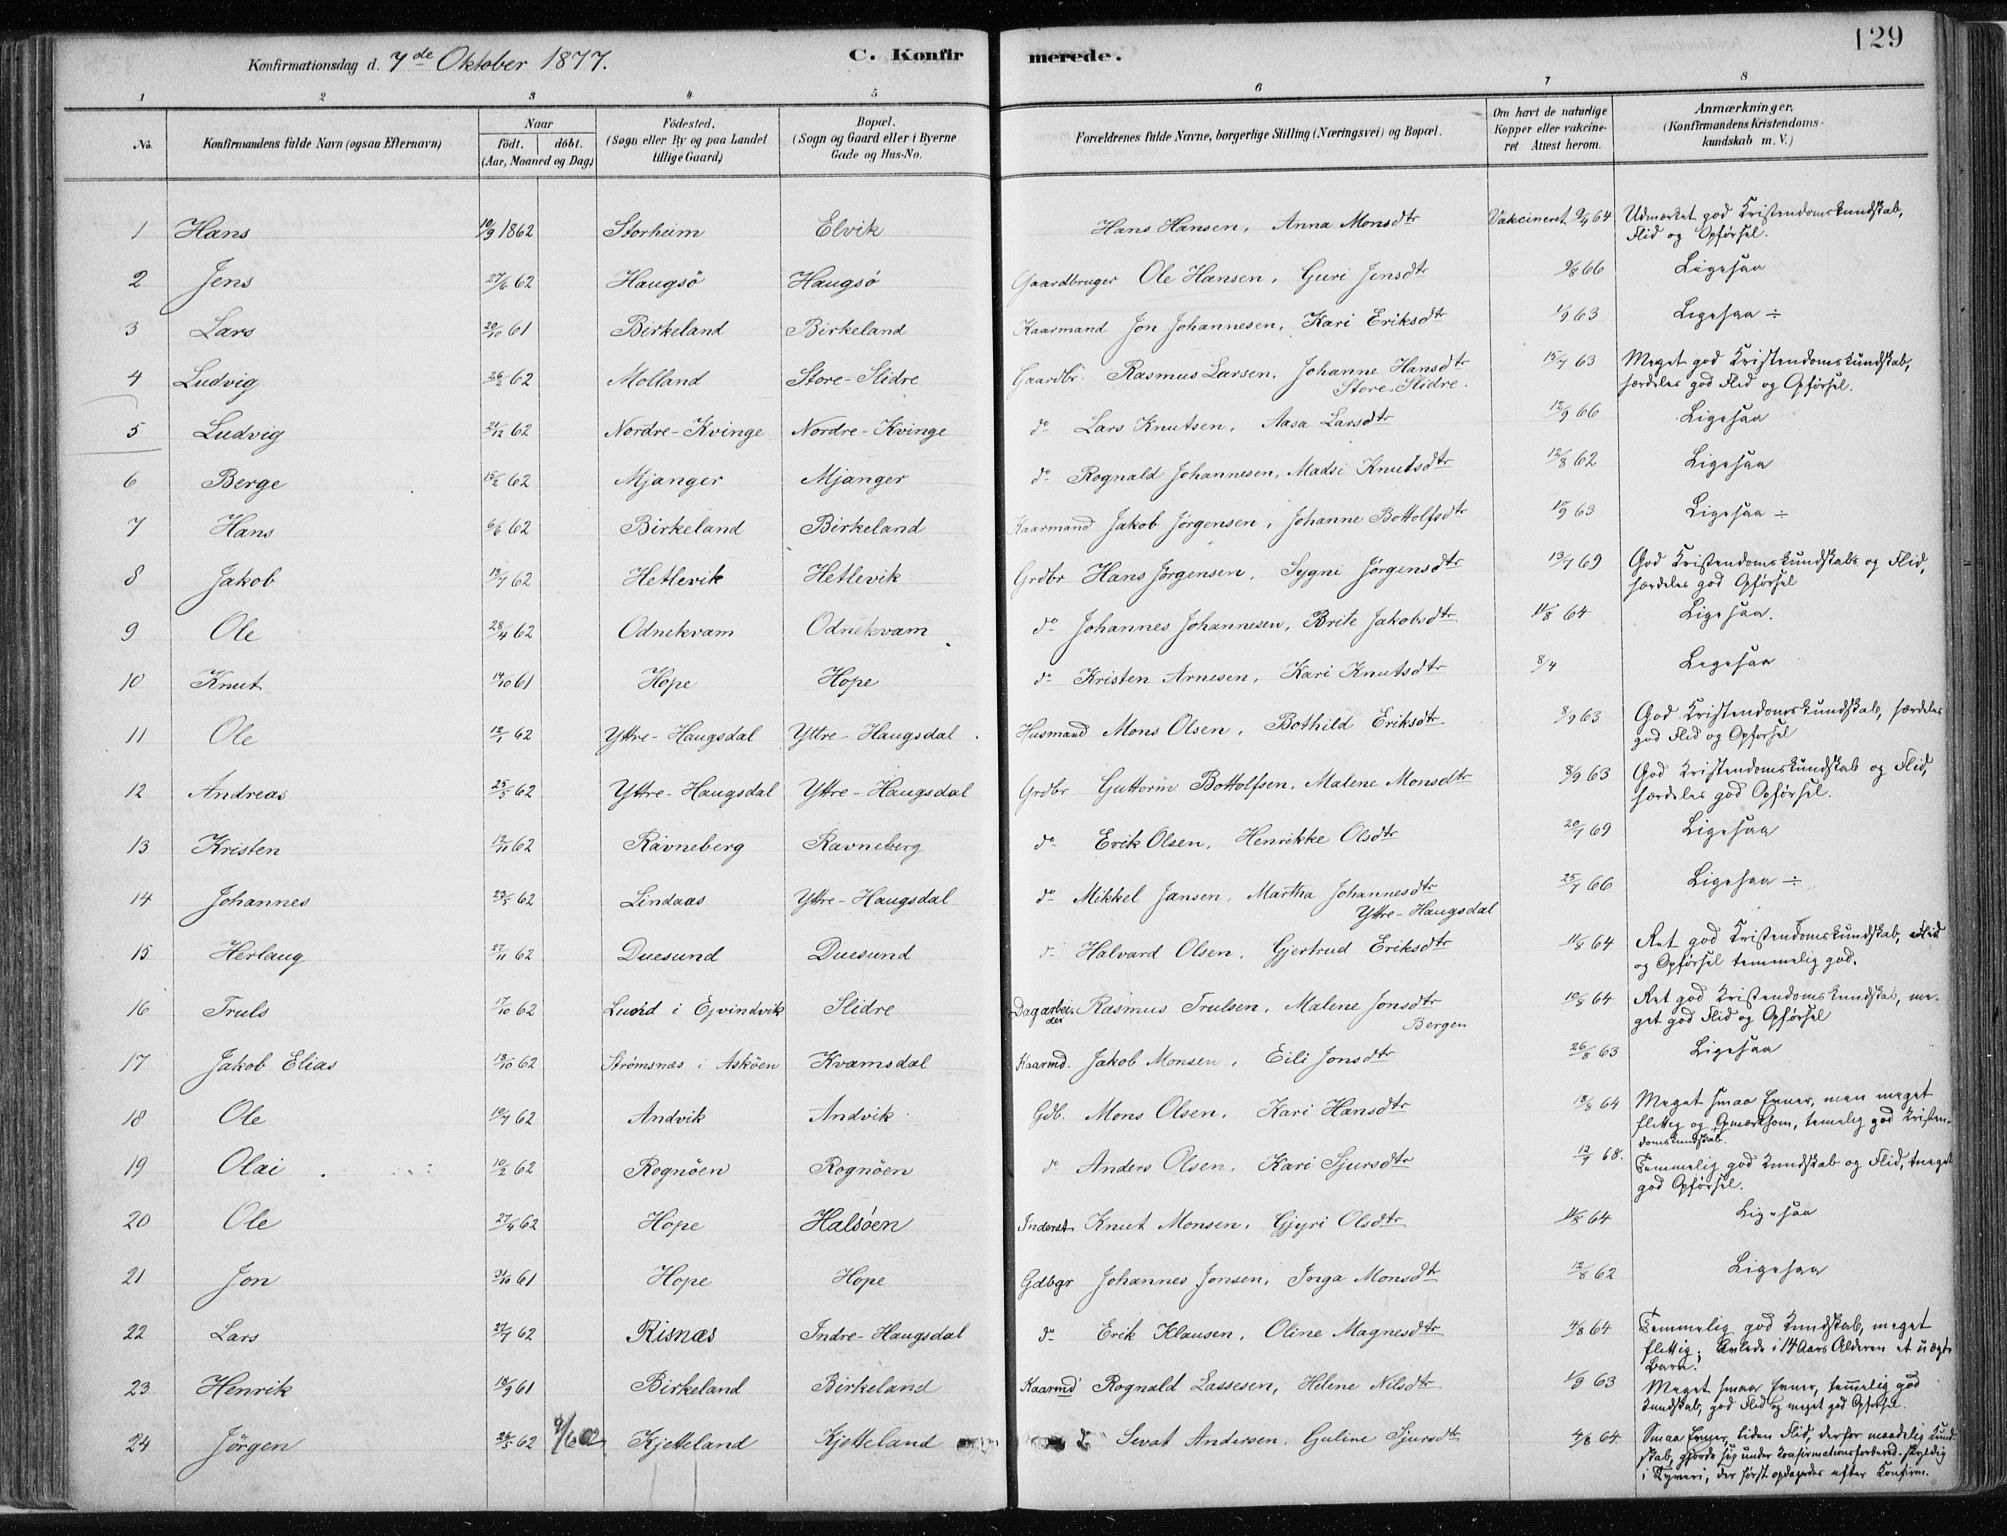 129
Konfirmationsdag d. 7de Oktober 1877. C. Konfirmerede.
1 2 3 4 5 6 7 8
No. Konfirmandens fulde Navn (ogsaa Efternavn) Naar født. døbt. (Aar, Maaned og Dag) Fødested. (Sogn eller By og paa Landet tillige Gaard) Bopæl. (Sogn og Gaard eller i Byerne Gade og Hus-No. Forældrenes fulde Navne, borgerlige Stilling (Næringsvei) og Bopæl. Om havt de naturlige Kopper eller vakcineret Attest herom. Anmærkninger. (Konfirmandens Kristendomskundskab m. V.)
1 Hans 10/9 1862 Storheim Elvik Hans Hansen, Anna Monsdtr Vakcineret 9/9 64 Udmærket god Kristendomskundskab,
Flid og Opførsel.
2 Jens 27/6 62 Haugsö Haugsö Gaardbruger Ole Hansen, Guri Jensdtr 9/8 66 Ligesaa
3 Lars 20/10 61 Birkeland Birkeland Kaarmand Jon Johannesen, Kari Eriksdtr 1/9 63 Ligesaa ÷
4 Ludvig 26/2 62 Molland Store-Slidre Gaardbr. Rasmus Larsen, Johanne Hansdtr 15/7 63 Meget god Kristendomskundskab,
Store-Slidre. særdeles god Flid og Opførsel.
5 Ludvig 21/12 62 Nordre-Kvinge Nordre-Kvinge do Lars Knutsen, Aasa Larsdtr 12/9 66 Ligesaa
6 Berge 15/2 62 Mjanger Mjanger do Rognald Johannesen, Madsi Knutsdtr 12/8 62 Ligesaa
7 Hans 6/6 62 Birkeland Birkeland Kaarmand Jakob Jørgensen, Johanne Bottolfsdtr 15/9 63 Ligesaa ÷
8 Jakob 15/7 62 Hetlevik Hetlevik Grdbr Hans Jørgensen, Sygni Jørgensdtr 13/7 69 God Kristendomskundskab og Flid,
særdeles god Opførsel
9 Ole 28/4 62 Odnekvam Odnekvam do Johannes Johannesen, Brite Jakobsdtr 11/8 64 Ligesaa.
10 Knut 14/10 61 Hope Hope do Kristen Arnesen, Kari Knutsdtr 8/4 Ligesaa
11 Ole 12/1 62 Yttre-Haugsdal Yttre-Haugsdal. Husmand Mons Olsen, Bothild Eriksdtr 8/9 63 God Kristendomskundskab, særdeles
god Flid og Opførsel
12 Andreas 25/5 62 Yttre-Haugsdal Yttre-Haugsdal Grdbr Guttorm Bottolfsen, Malene Monsdtr 8/9 63 God Kristendomskundskab og Flid,
særdeles god Opførsel.
13 Kristen 12/11 62 Ravneberg Ravneberg do Erik Olsen, Henrikke Olsdtr 20/7 69 Ligesaa
14 Johannes 62 Lindaas Yttre-Haugsdal do Mikkel Jansen, Martha Johannesdtr 25/7 66 Ligesaa ÷
Yttre-Haugsdal
15 Herlaug 27/11 62 Duesund Duesund do Halvard Olsen, Gjertrud Eriksdtr 11/8 64 Ret god Kristendomskundskab, Flid
og Opførsel temmelig god.
16 Truls 17/10 62 i Ejvindvik Slidre Dagarbeider Rasmus Trulsen, Malene Jonsdtr 10/8 64 Ret god Kristendomskundskab, me-
Bergen get god Flid og Opførsel
17 Jakob Elias 13/10 62 Strømsnæs i Askøen Kvamsdal Kaarmd. Jakob Monsen, Eili Jonsdtr 26/8 63 Ligesaa
18 Ole 10/7 62 Andvik Andvik Gdb. Mons Olsen, Kari Hansdtr 12/8 64 Meget smaa Evner, men meget
flittig og opmærksom, temelig god Kristen-
domskundskab.
19 Olai 10/2 62 Rognöen Rognöen do Anders Olsen, Kari Sjursdtr 12/7 68. Temmelig god Kundskab og Flid, meget
god Opførsel.
20 Ole 27/4 62 Hope Halsöen Inderst Knut Monsen, Gjyri Olsdtr 11/8 64 Ligesaa
21 Jon 3/10 61 Hope Hope Gdbgr Johannes Jonsen, Inga Monsdtr 12/8 62 Ligesaa
22 Lars 27/7 62 Risnæs Indre-Haugsdal do Erik Klausen, Oline Magnesdtr 4/8 64 Temmelig god Kundskab, meget
flittig; Avlede i 14 Aars Alderen et uægte
Barn.
23 Henrik 18/9 61 Birkeland Birkeland Kaarmd Rognald Lassesen, Helene Nilsdtr 1/9 63 Meget smaa Evner, temmelig god
Kundskab, god Flid og meget god Opførsel.
24 Jørgen 62 9/6 62 Kjetteland Kjetteland Sevat Andersen, Guline Sjursdtr 4/8 64. Smaa Evner, liden Flid, derfor maadelig Kund-
skab, gjorde sig under Konfirmationsforbered. skyldig
i Tyveri, der først opdagedes efter Konfirm.